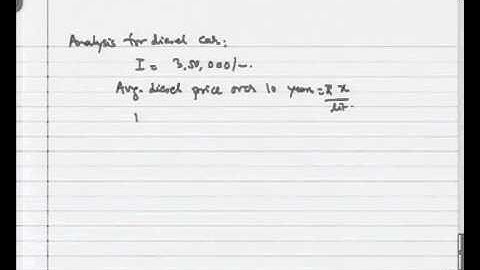 Analysis for diesel car:
I = 3,50,000/-
Avg. diesel price over 10 years = ₹ x/lit.